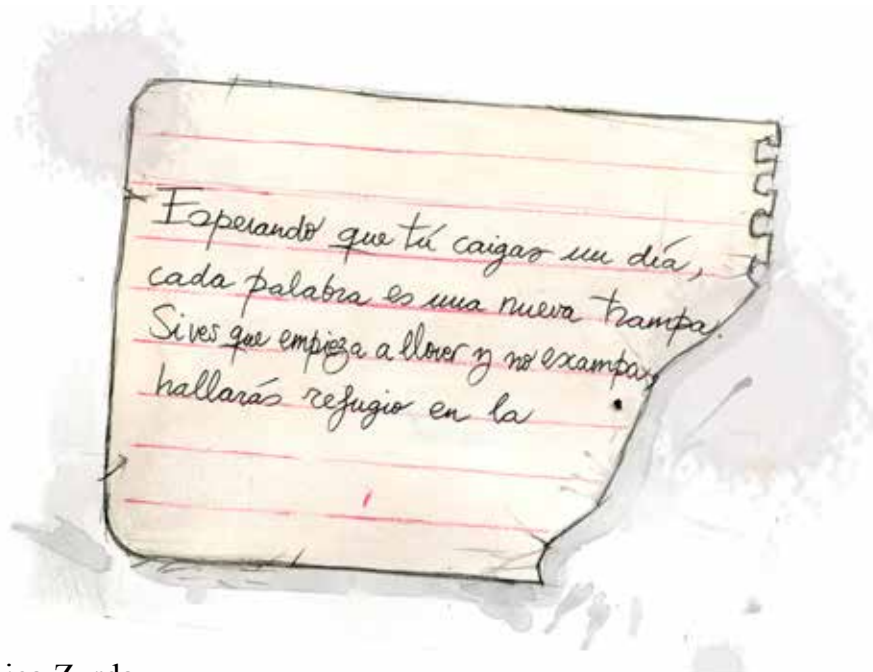 Esperando que tú caigas un día,
cada palabra es una nueva trampa.
Si ves que empieza a llover y no exampa,
hallarás refugio en la